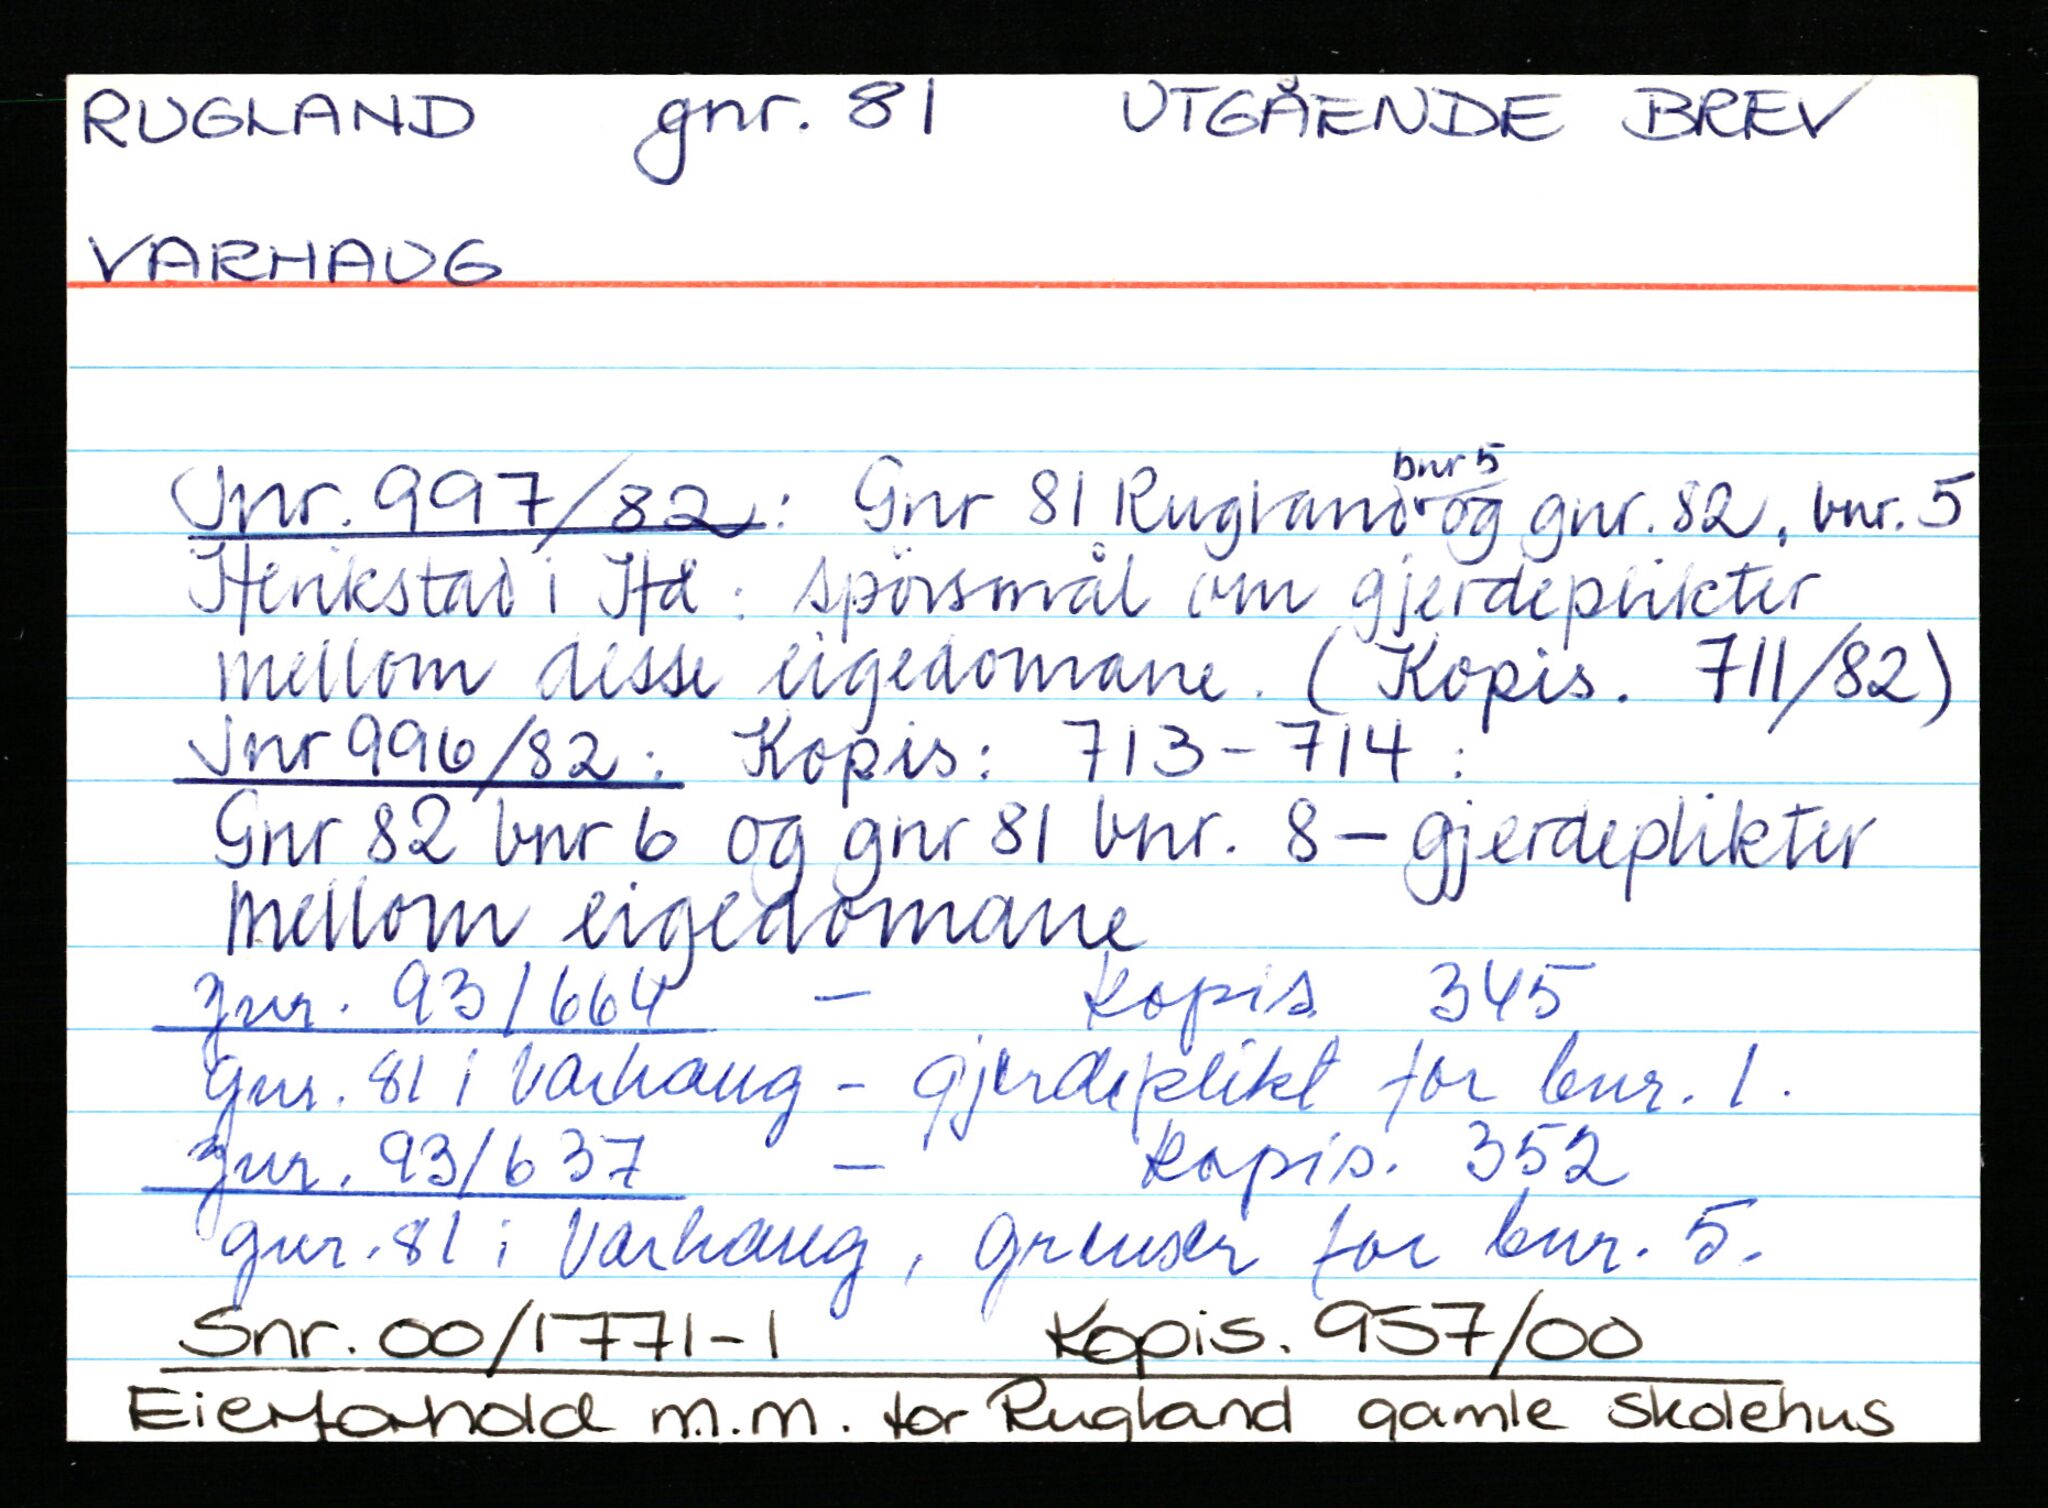 RUGLAND gnr. 81 UTGÅENDE BREV
VARHAUG
Jnr. 997/82: Gnr 81 Rugland bnr 5 og gnr. 82, bnr. 5
Henrikstad i Hå: spörsmål om gjerdeplikter
mellom desse eigedomane. (Kopis. 711/82)
Jnr 996/82: Kopis: 713-714:
Gnr 82 bnr 6 og gnr 81 bnr. 8 - gjerdeplikter
mellom eigedomane
Jnr. 93/664 - Kopis. 345
gnr. 81 i Varhaug - gjerdeplikt for bnr. 1.
Jnr. 93/637 - Kopis. 352
gnr. 81 i Varhaug, grenser for bnr. 5.
Snr. 00/1771-1 Kopis. 957/00
Eierforhold m.m. for Rugland gamle skolehus